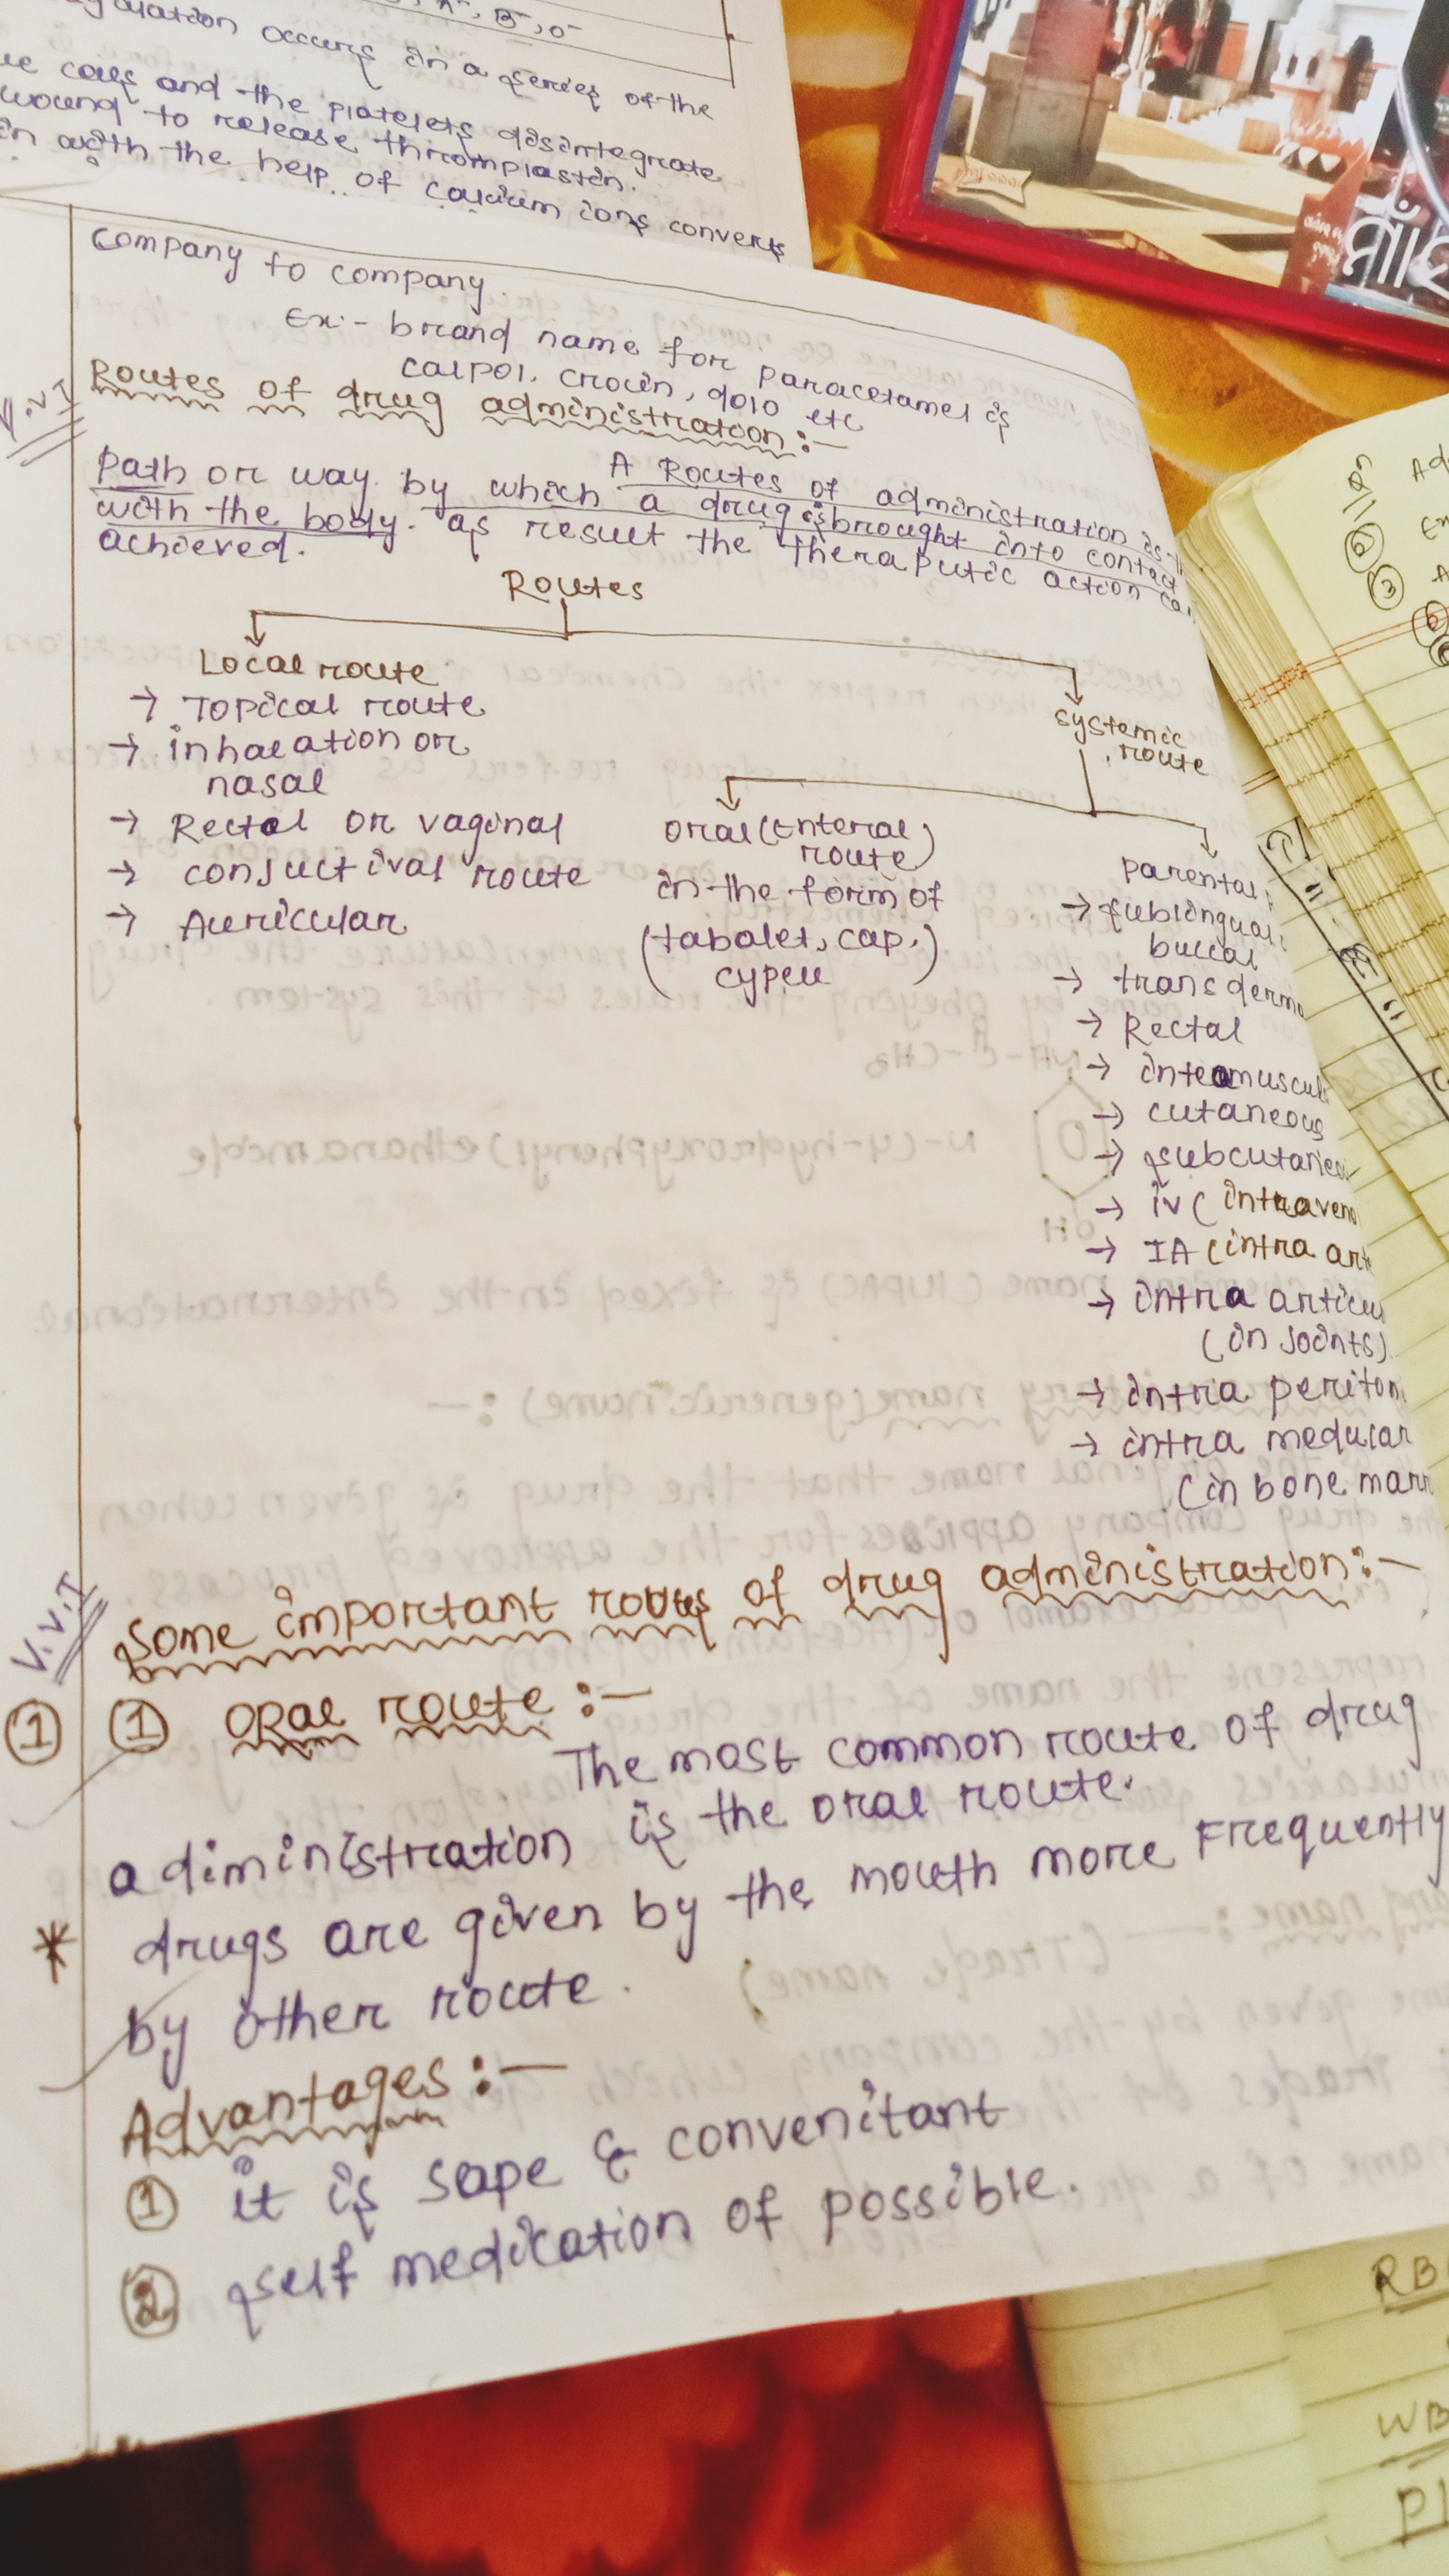 A⁻, B⁻, O⁻
occurs in a series of the
cells and the platelets disintegrate
wound to release thromplastin.
in with the help of calcium ions converts
company to company.
Ex:- brand name for paracetamel is
calpol, crocin, dolo etc
V.V.I
Routes of drug administration :-
A Routes of administration is
path or way by which a drug is brought into contact
with the body. as result the theraputic action
achieved.
Routes
Local route
→ Topical route
→ inhalation or
nasal
→ Rectal or vaginal
→ conjuctival route
→ Auricular
systemic
route
oral (Enteral
route)
in the form of
(tabalet, cap,
cypeu)
parental
→ sublingual
buccal
→ transderm
→ Rectal
→ inteamuscul
→ cutaneous
→ subcutaneo
→ iv (intraveno
→ IA (intra art
→ intra articu
(in joints)
→ intra periton
→ intra medular
(in bone marr
V.V.I
Some important routs of drug administration :-
① ① ORal route :-
The most common route of drug
adiministration is the oral route.
* drugs are given by the mouth more Frequently
by other route.
Advantages :-
① it is sape & convenitant
② self medication of possible.
Ad
②
③
RB
WB
Pl